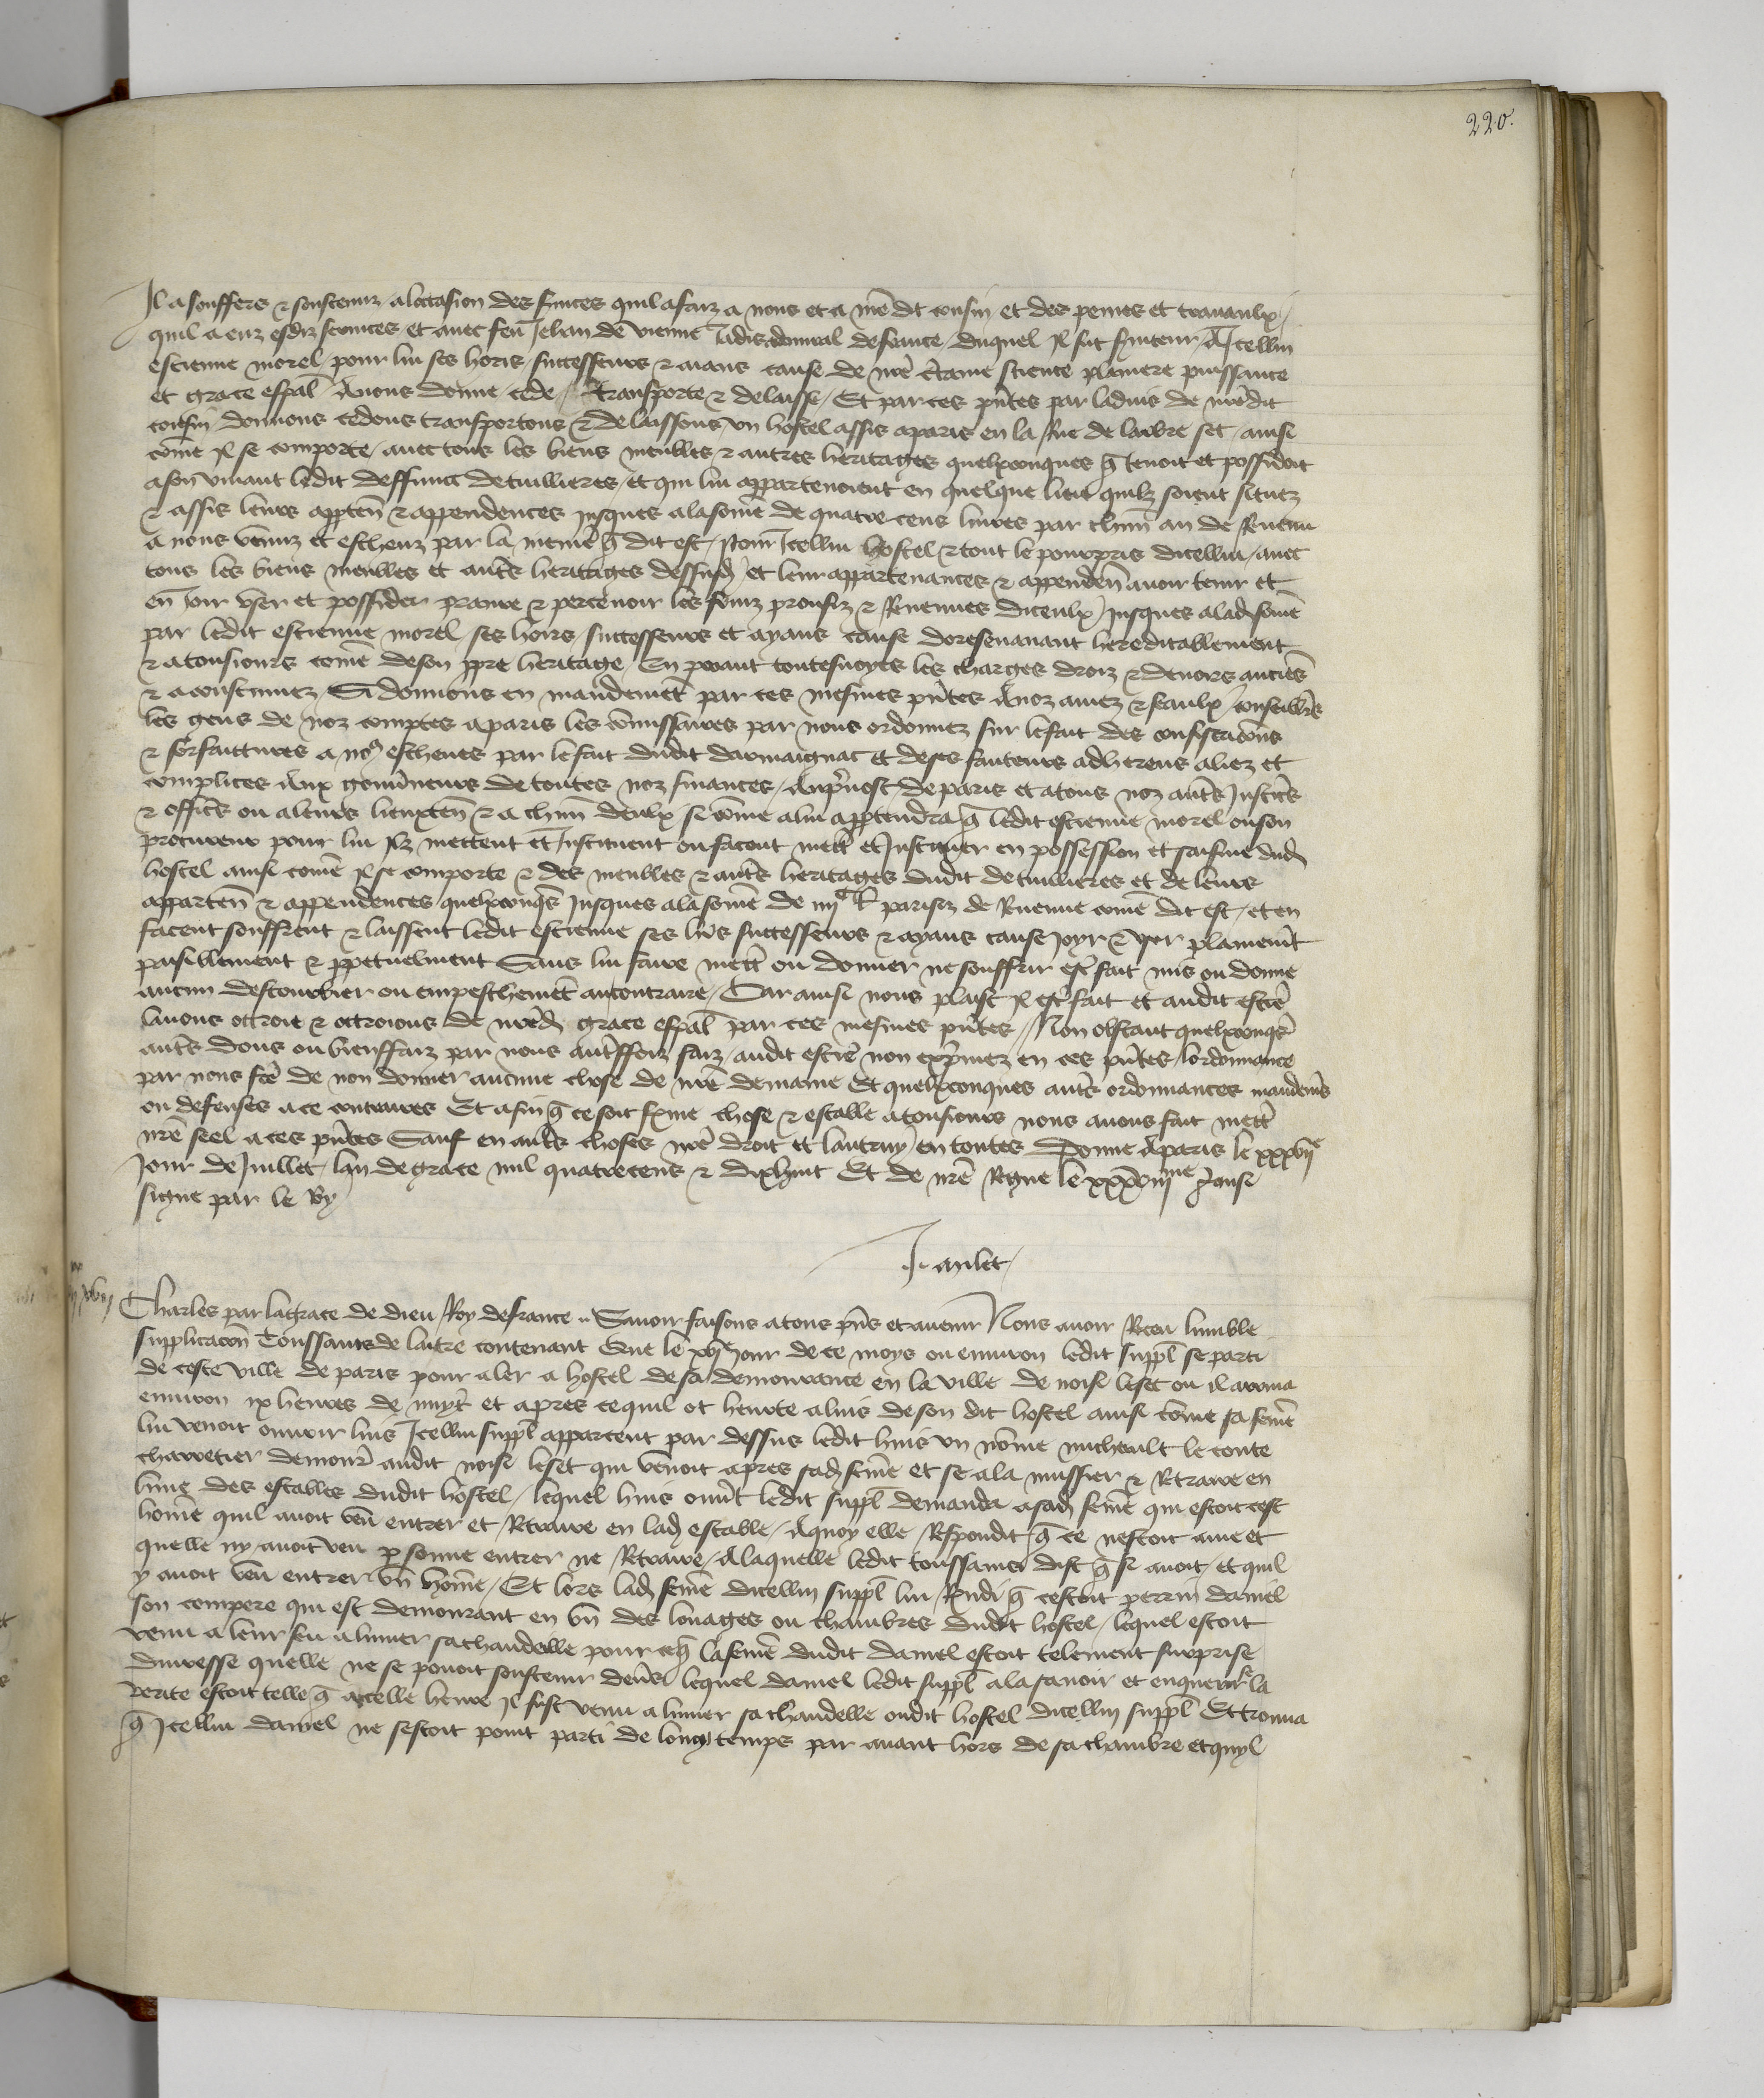 220.
Il a souffers & soustenuz a loccasion des svices quil a faiz a nous et a nre dit cousin et des peines et travaulx
quil a euz esdiz services et avec feu Jehan de vienne Jadis admiral de france duquel Il fut sviteur A Icellui
estienne morel pour lui ses hoirs successeurs & aians cause de nre ctaine science plainiere puissance
et grace espal Avons donne cede transporte & delaisse Et par ces pntes par ladvis de nredit
cousin donnons cedons transportons & delaissons un hostel assis a paris en la Rue de larbre sec ainsi
come Il se comporte avec tous les biens meubles & autres heritages quelxconques q tenoit et possidoit
a son vivant ledit deffunct de tuillieres et qui lui appartenoient en quelque lieu quilz soient situez
& assis leurs appten & appendences Jusques a la some de quatre cens livres par chun an de Revenu
a nous venuz et escheuz par la meniere q dit est pour Icellui hostel & tout le pourpris dicellui avec
tous les biens meubles et autres heritages dessusd et leur appartenances & appenden avoir tenir et
en Joir user et possider prandre & percevoir les fruiz proufiz & Revenues diceulx Jusques a lad some
par ledit estienne morel ses hoirs successeurs et ayans cause doresenavant hereditablement
& a tousiours come de son ppre heritage En paiant toutesvoyes les charges droiz & devoirs anciens
& acoustumez Si donnons en mandement par ces mesmes pntes A noz amez & feaulx conseilliers
les gens de noz comptes a paris les comissaires par nous ordonnez sur le fait des confiscacions
& forfaittures a nos escheues par le fait dudit darmaignac et de ses fauteurs adherens aliez et
complices Aux gouverneurs de toutes noz finances Au prevost de paris et a tous noz autres Justiciers
& officiers ou a leurs lieuxten & a chun deulx si come a lui apptendra q ledit estienne morel ou son
procureur pour lui Ilz mettent et Instituent ou facent mettre et Instituer en possession et saisine dud
hostel ainsi come Il se comporte & des meubles & autres heritages dudit de tuillieres et de leurs
apparten & appendences quelxconqs Jusques a la some de iiijc l parisis de Revenue come dit est et en
facent souffrent & laissent ledit estienne ses hoirs successeurs & ayans cause Joyr & user plainement
paisiblement & ppetuelment Sans lui faire mettre ou donner ne souffrir estre fait mis ou donne
aucun destourbier ou empeschement au contraire Car ainsi nous plaist Il estre fait et audit estie
lavons ottroie & ottroions de nred grace espal par ces mesmes pntes Non obstant quelxconqs
autres dons ou bienffaiz par nous autreffoiz faiz audit estie non exprimez en ces pntes lordonnance
par nous fce de non donner aucune chose de nre demaine Et quelxconques autres ordonnances mandemens
ou defenses a ce contraires Et afin q ce soit ferme chose & estable a tousiours nous avons fait mettre
nre seel a ces pntes Sauf en autres choses nre droit et lautruy en toutes Donne a paris le xxvije
Jour de Juillet lan de grace mil quatrecens & dixhuit Et de nre Regne le xxxviijme ainsi
signe par le Roy
Charles par la grace de dieu Roy de france Savoir faisons a tous pns et avenir Nous avoir Receu lumble
supplicacon Toussains de laitre contenant Que le xvije Jour de ce moys ou environ ledit suppl se parti
de ceste ville de paris pour aler a hostel de sa demourance en la ville de noisi le sec ou il arriva
environ ix heures de nuyt et apres ce quil ot heurte a luis de son dit hostel ainsi come sa feme
lui venoit ouvrir luis Icellui suppl apparceut par dessus ledit huis un nome michault le conte
charretier demourant audit noisi le sec qui venoit apres sad feme et se ala mussier & Retraire en
lune des estables dudit hostel lequel huis ouvert ledit suppl demanda a sad feme qui estoit cest
home quil avoit veu entrer et Retraire en lad estable A quoy elle Respondit q ce nestoit ame et
quelle ny avoit veu psonne entrer ne Retraire A laquelle ledit toussains dist q si avoit et quil
y avoit veu entrer un home Et lors lad feme dicellui suppl lui Rndi q cestoit perrin daniel
son compere qui est demourant en un des louages ou chambres dudit hostel lequel estoit
venu a leur feu alumer sa chandeille pour ce q la feme dudit daniel estoit telement surprise
divresse quelle ne se povoit soustenir devers lequel daniel ledit suppl ala savoir et enquerir se la
verite estoit telle q a celle heure Il fust venu alumer sa chandelle oudit hostel dicellui suppl Et trouva
q Icellui daniel ne sestoit point parti de long temps par avant hors de sa chambre et quyl